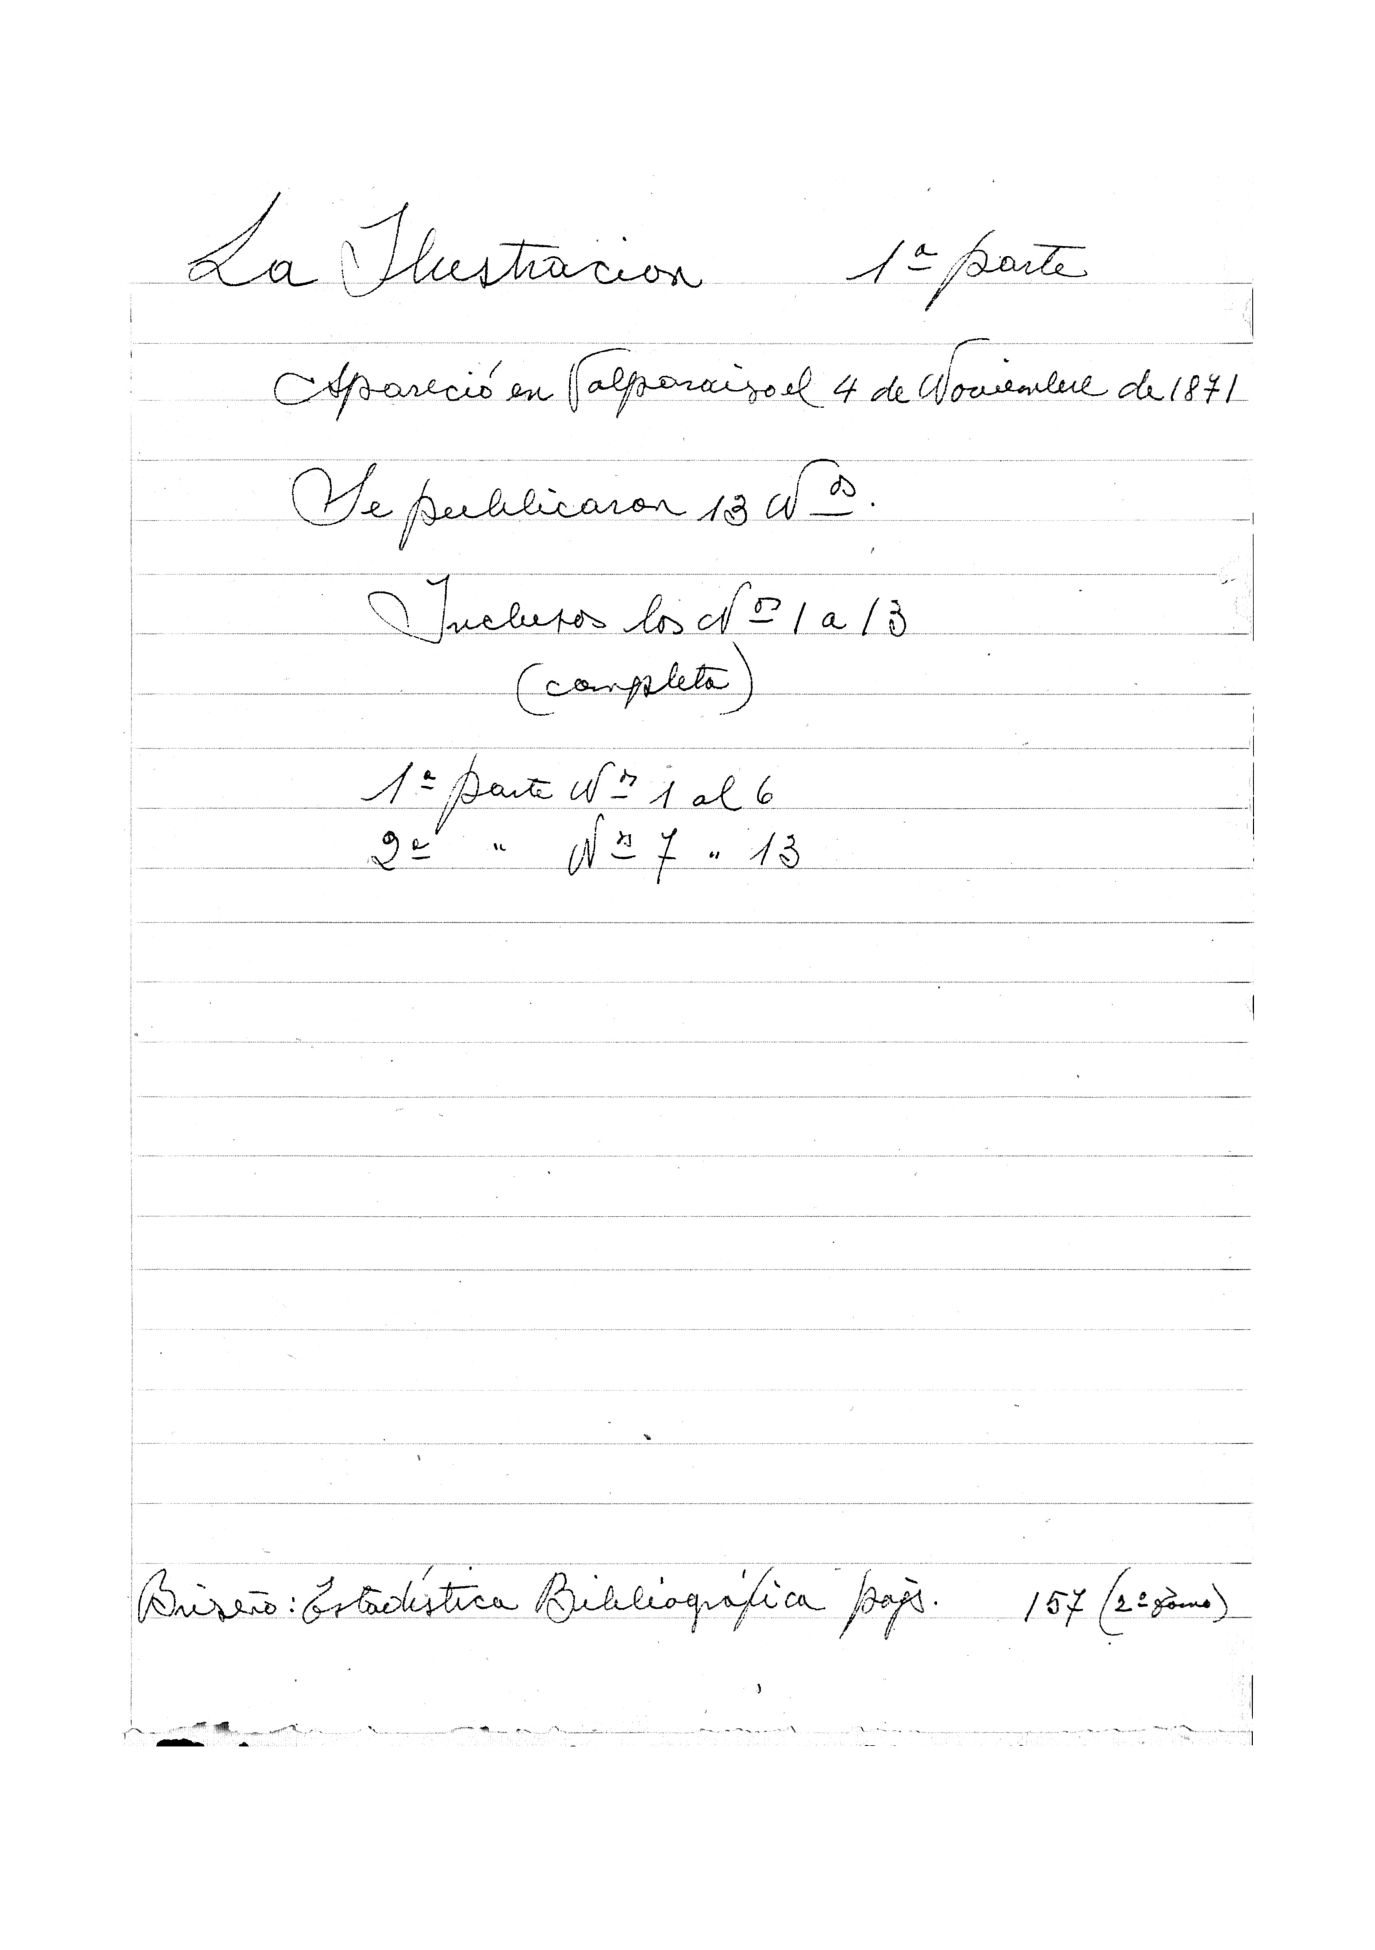 La Ilustracion 1ª parte
Apareció en Valparaiso el 4 de Noviembre de 1871
Se publicaron 13 Nos.
Inclusos los Nos 1 a 13
(completa)
1ª parte Nos 1 al 6
2ª " Nos 7 " 13
Briseño: Estadística Bibliográfica pájs. 157 (2º tomo)